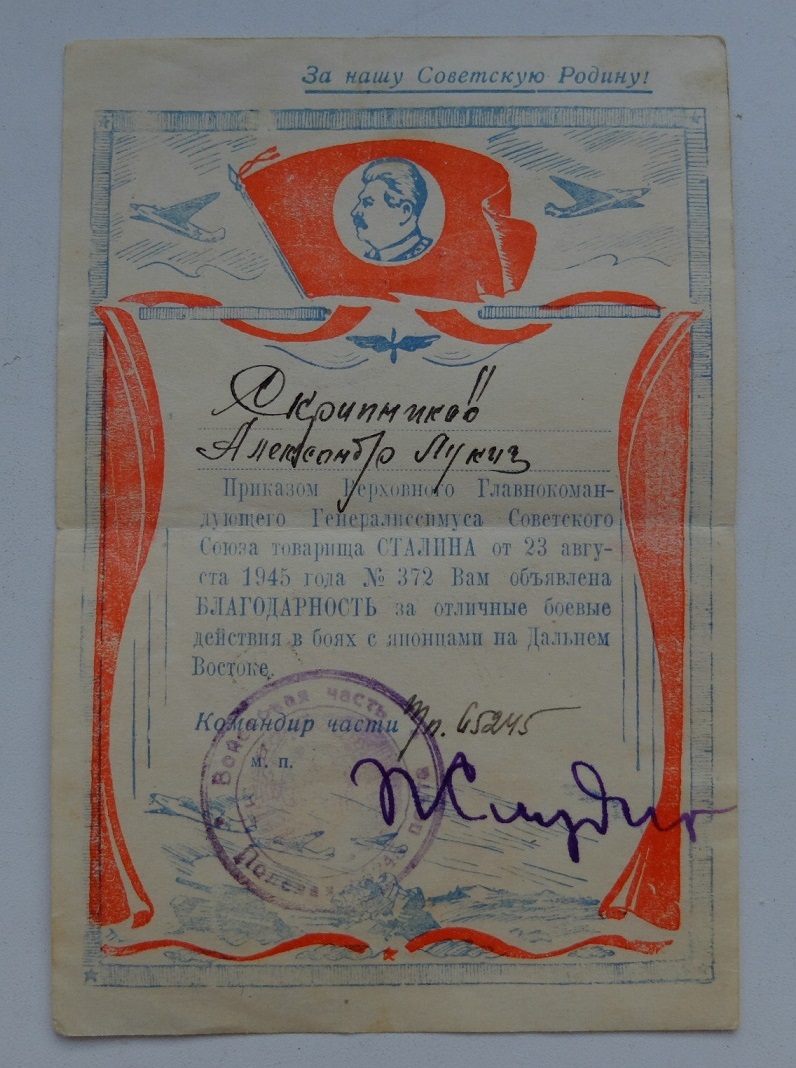 За нашу Советскую Родину!
Скрипников
Александр Лукич
Приказом Верховного Главнокоман-
дующего Генералиссимуса Советского
Союза товарища СТАЛИНА от 23 авгу-
ста 1945 года № 372 Вам объявлена
БЛАГОДАРНОСТЬ за отличные боевые
действия в боях с японцами на Дальнем
Востоке.
Командир части пп. 65245
м. п.
Войсковая часть
Полевая